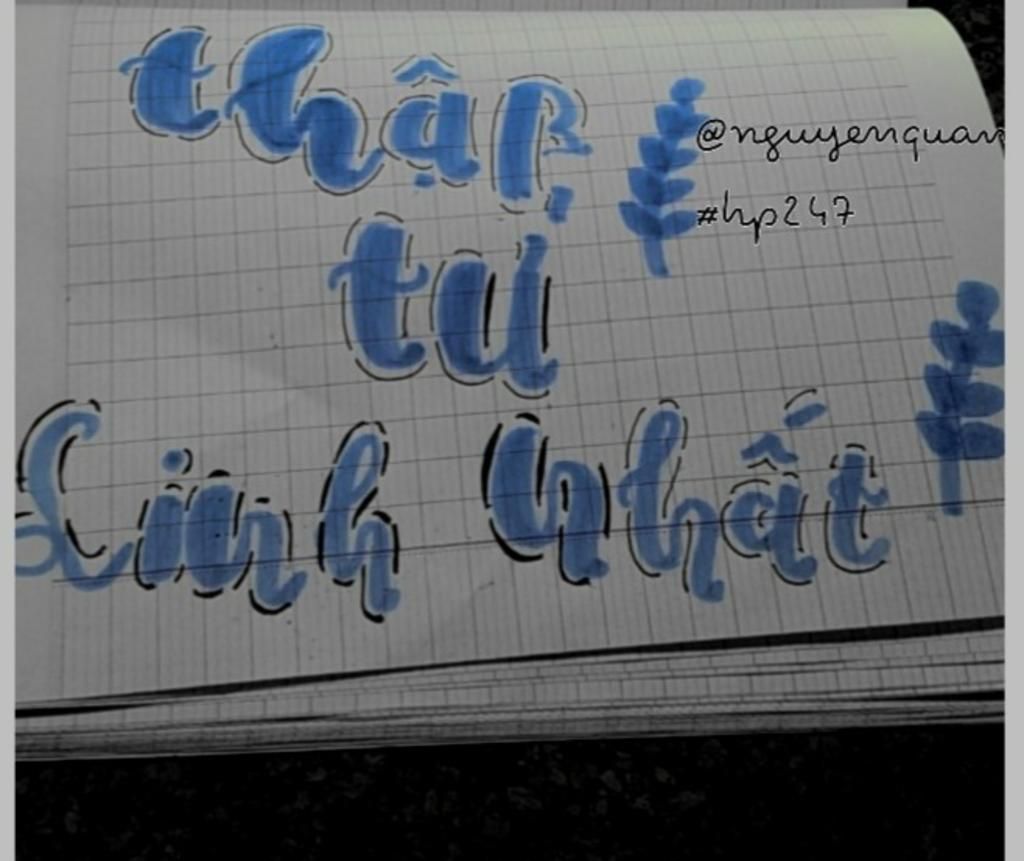 thập
tú
Linh Nhất
@nguyenquan
#hp247